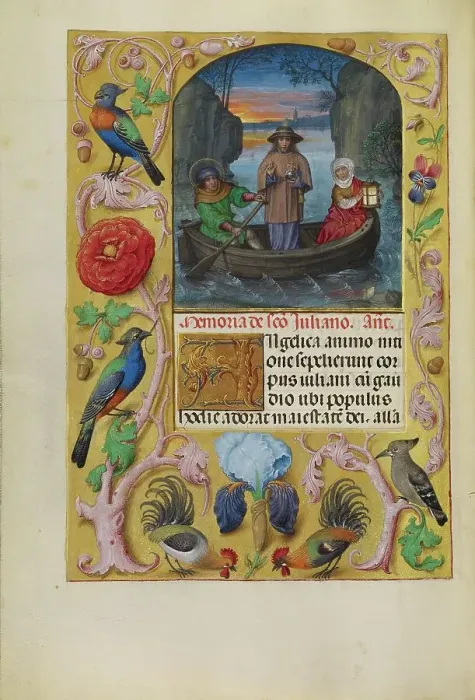 Memoria de sc̄o Iuliano. Añt.
Angelica animo inti
one sepelierunt cor
pus iuliani cū gau
dio ubi populus
hodie adorat maiestatē dei. alla